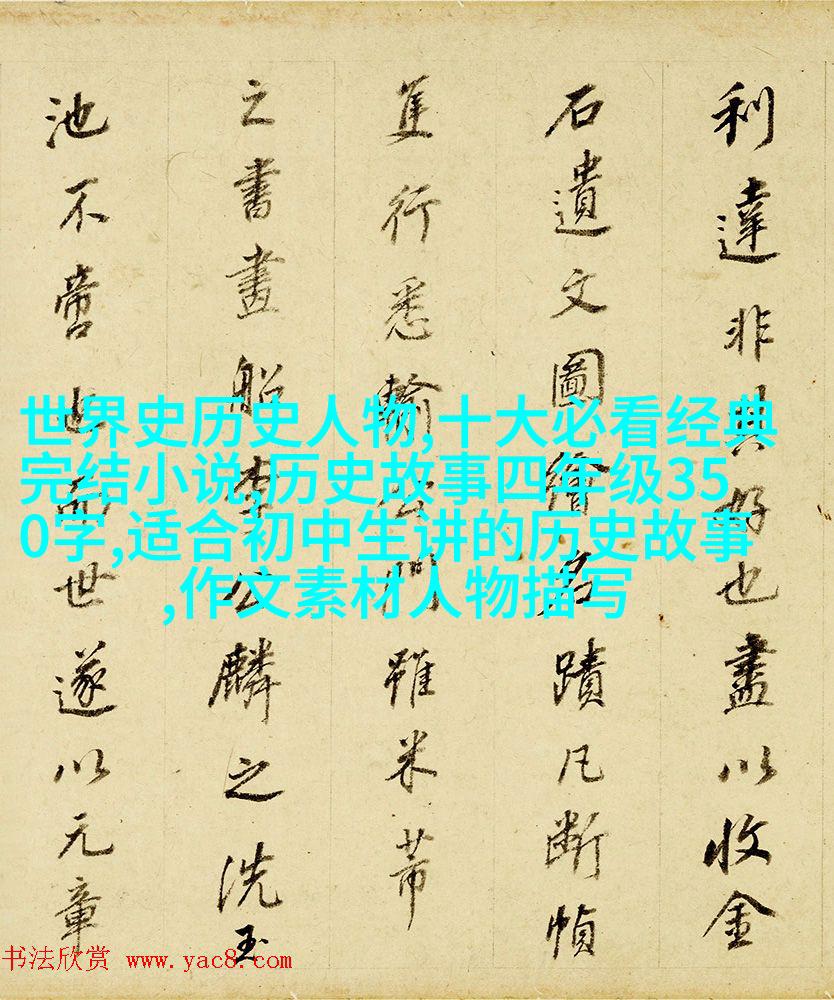 利達非其好也盡以收金
石遺文圖繪名蹟凡斷幀
隻行悉輸公門雖米芾
之書畫船李公麟之洗玉
池不啻也而世遂以元章
世界史历史人物,十大必看经典
完结小说,历史故事四年级35
0字,适合初中生讲的历史故事
,作文素材人物描写
书法欣赏 www.yac8.com